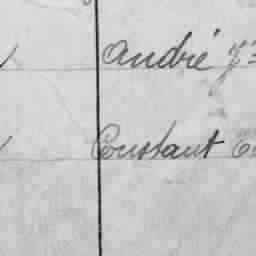 André
Constant